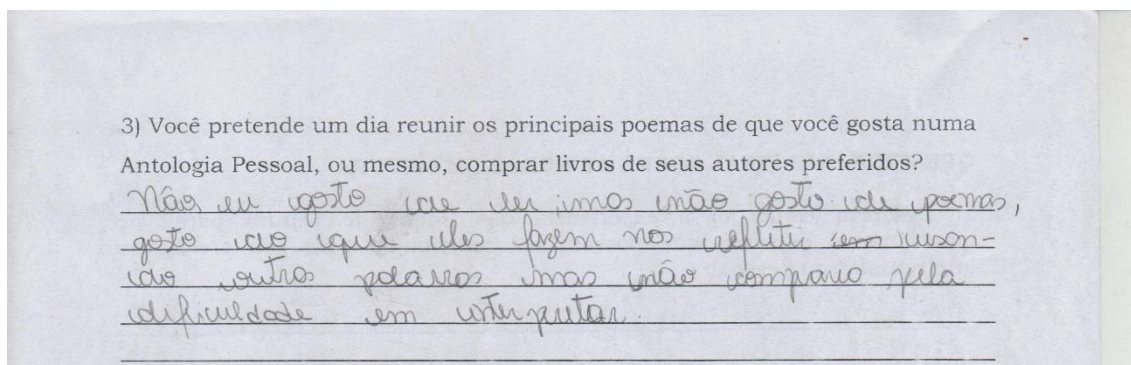 3) Você pretende um dia reunir os principais poemas de que você gosta numa
Antologia Pessoal, ou mesmo, comprar livros de seus autores preferidos?
Não eu gosto de ler mas não gosto de poemas,
gosto do que eles fazem nos refletir em usan-
do outras palavras mas não compraria pela
dificuldade em interpretar.